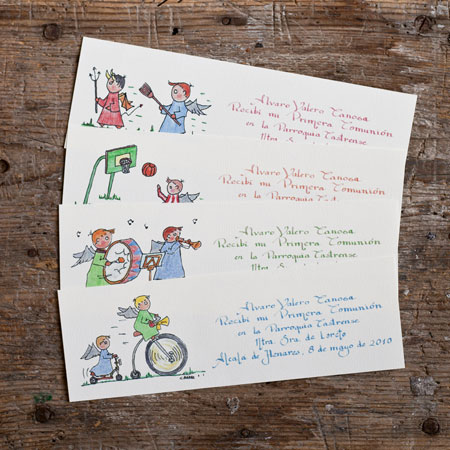 Alvaro Valero Tanosa
Recibí mi Primera Comunión
en la Parroquia Castrense
Ntra. S
Alvaro Valero Tanosa
Recibí mi Primera Comunión
en la Parroquia Castrense
Alvaro Valero Tanosa
Recibí mi Primera Comunión
en la Parroquia Castrense
Ntra. S
Alvaro Valero Tanosa
Recibí mi Primera Comunión
en la Parroquia Castrense
Ntra. Sra. de Loreto
Alcalá de Henares, 8 de mayo de 2010